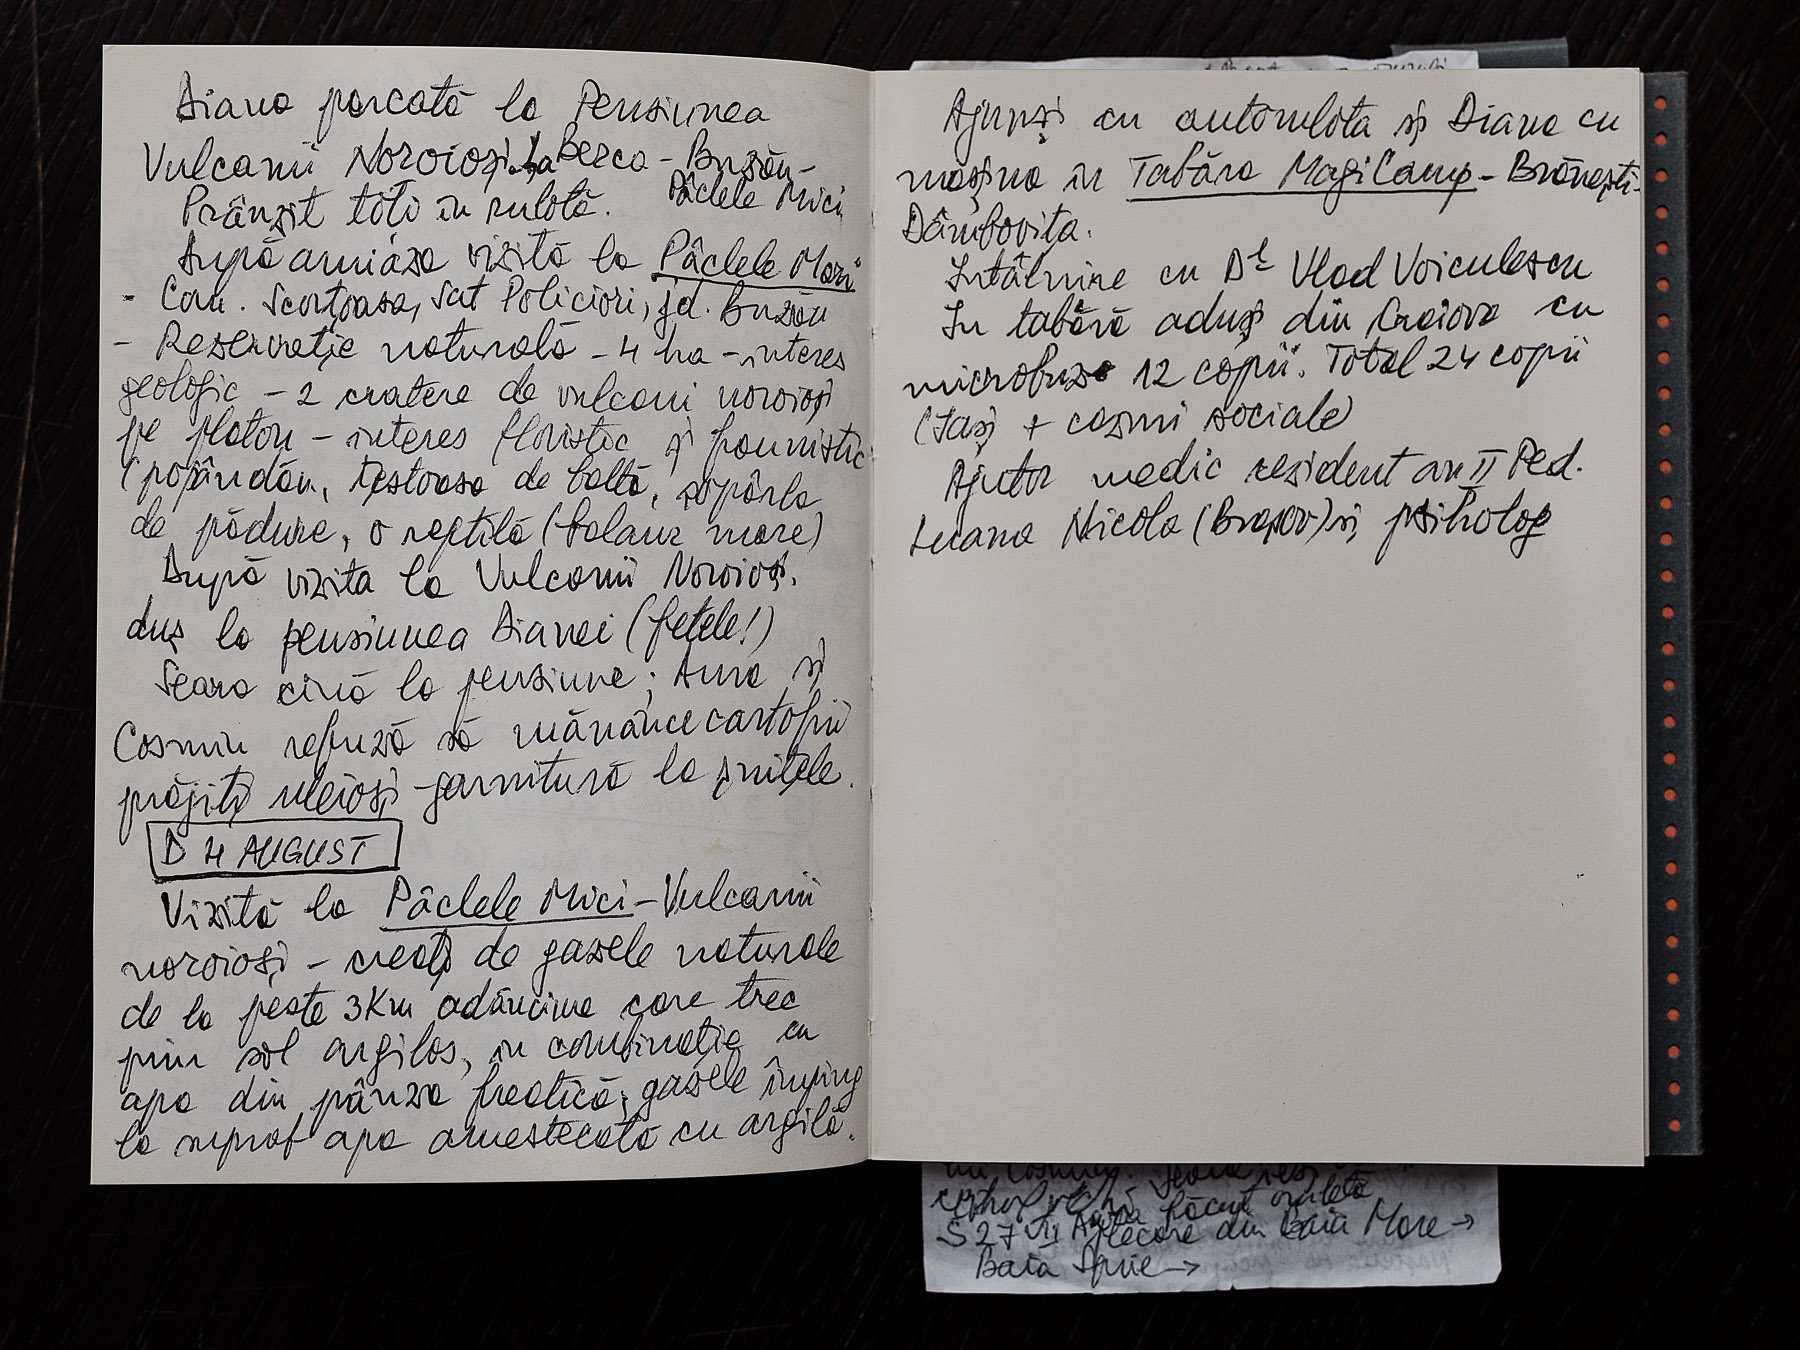 Diana parcată la Pensiunea
Vulcanii Noroioși. La Berca - Buzău -
Pâclele Mici
Prânzit toți în rulotă.
După amiáza vizită la Pâclele Mari
- Com. Scorțoasa, Sat Policiori, jd. Buzău
- Rezervație naturală - 4 ha - interes
geologic - 2 cratere de vulcani noroioși
pe platou - interes floristic și faunistic
(popândău, țestoasa de baltă, șopârla
de pădure, o reptilă (balaur mare)
După vizita la Vulcanii Noroioși.
duș la pensiunea Dianei (fetele!)
Seara cină la pensiune; Ana și
Cosmin refuză să mănânce cartofii
prăjiți uleioși - garnitură la șnițele.
D 4 AUGUST
Vizită la Pâclele Mici - Vulcanii
noroioși - creați de gazele naturale
de la peste 3 Km adâncime care trec
prin sol argilos, în combinație cu
apa din pânza freatică; gazele împing
la supraf apa amestecată cu argilă.
Ajunși cu autorulota și Diana cu
mașina în Tabăra MagiCamp - Brănești -
Dâmbovița.
Întâlnire cu Dl Vlad Voiculescu
În tabără aduși din Craiova cu
microbuz 12 copii. Total 24 copii
(Iași + cazuri sociale)
Ajutor medic rezident an II Ped.
Nicola (Brașov) și psiholog
Seara
Ajuta făcut ruleta
S 27 VII plecare din Baia Mare →
Baia Sprie →